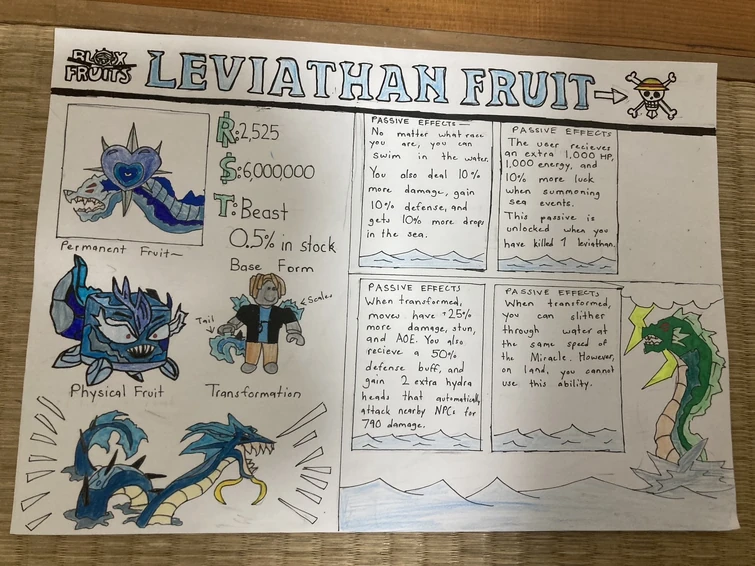 BLOX
FRUITS
LEVIATHAN FRUIT
R:2,525
$:6,000000
T:Beast
0.5% in stock
Permanent Fruit~
Base Form
Scales
Tail
Physical Fruit
Transformation
PASSIVE EFFECTS —
No matter what race
you are, you can
swim in the water.
You also deal 10%
more damage, gain
10% defense, and
gets 10% more drops
in the sea.
PASSIVE EFFECTS
The user recieves
an extra 1,000 HP,
1,000 energy, and
10% more luck
when summoning
sea events.
This passive is
unlocked when you
have killed 1 leviathan.
PASSIVE EFFECTS
When transformed,
moves have +25%
more damage, stun,
and AOE. You also
recieve a 50%
defense buff, and
gain 2 extra hydra
heads that automatically
attack nearby NPCs for
790 damage.
PASSIVE EFFECTS
When transformed,
you can slither
through water at
the same speed of
the Miracle. However,
on land, you cannot
use this ability.